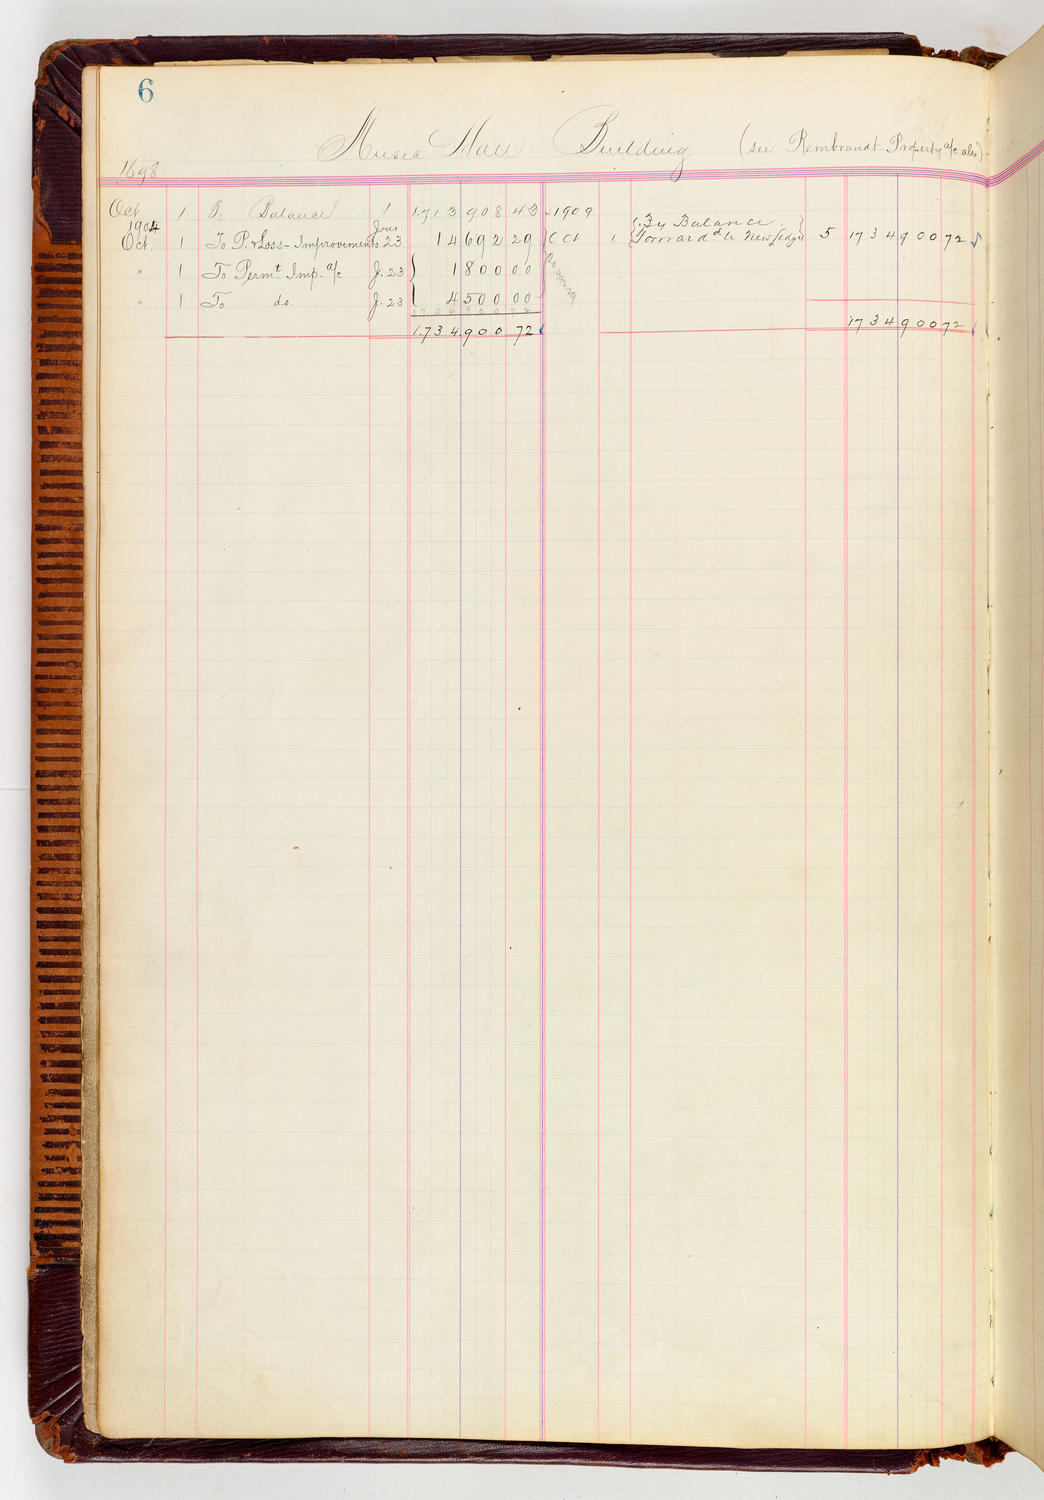 6
Music Hall Building (see Rembrandt Property a/c also)
1898
Oct 1 To Balance 1 1713908 43
1904 Jour.
Oct. 1 To P. & Loss - Improvements 23 14692 29
" 1 To Permt. Imp. a/c J. 23 1800 00
" 1 To do. J. 23 4500 00
1734900 72
1734900 72
20,992.29
1909
Oct 1 By Balance
Forward d to New Ledger 5 1734900 72
1734900 72